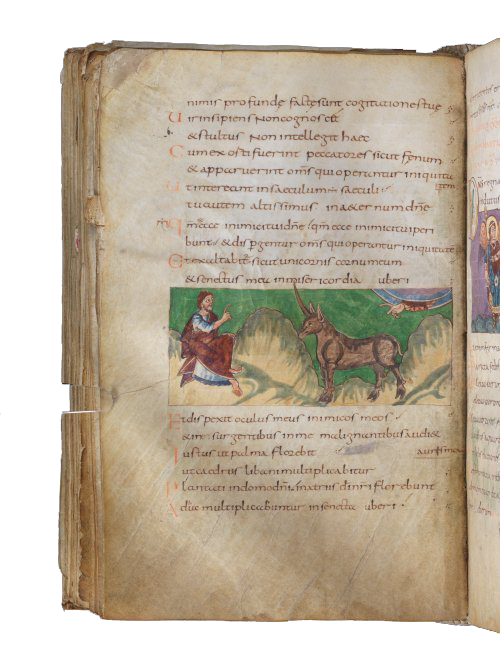 nimis profunde factesunt cogitationestue
Uir insipiens noncognoscet
&stultus non intellegit haec
Cum exortifuerint peccatores sicut fenum
& apparuerint oms qui operantur iniquita
tem
Ut intereant insaeculum saeculi
tuautem altissimus inaeternum dne
Qm ecce inimicituidne qm ecce inimicituiperi
bunt & dispgentur oms qui operantur iniquitate
Et exaltabit sicut unicornis cornumeum
& senectus mea inmisericordia uberi
Et dispexit oculus meus inimicos meos
& in surgentibus inme malignantibus audi&
auris mea
Iustus ut palma florebit
ut caedrus libani multiplicabitur
Plantati indomodni inatriis dinri florebunt
Adhuc multiplicabuntur insenecta uberi